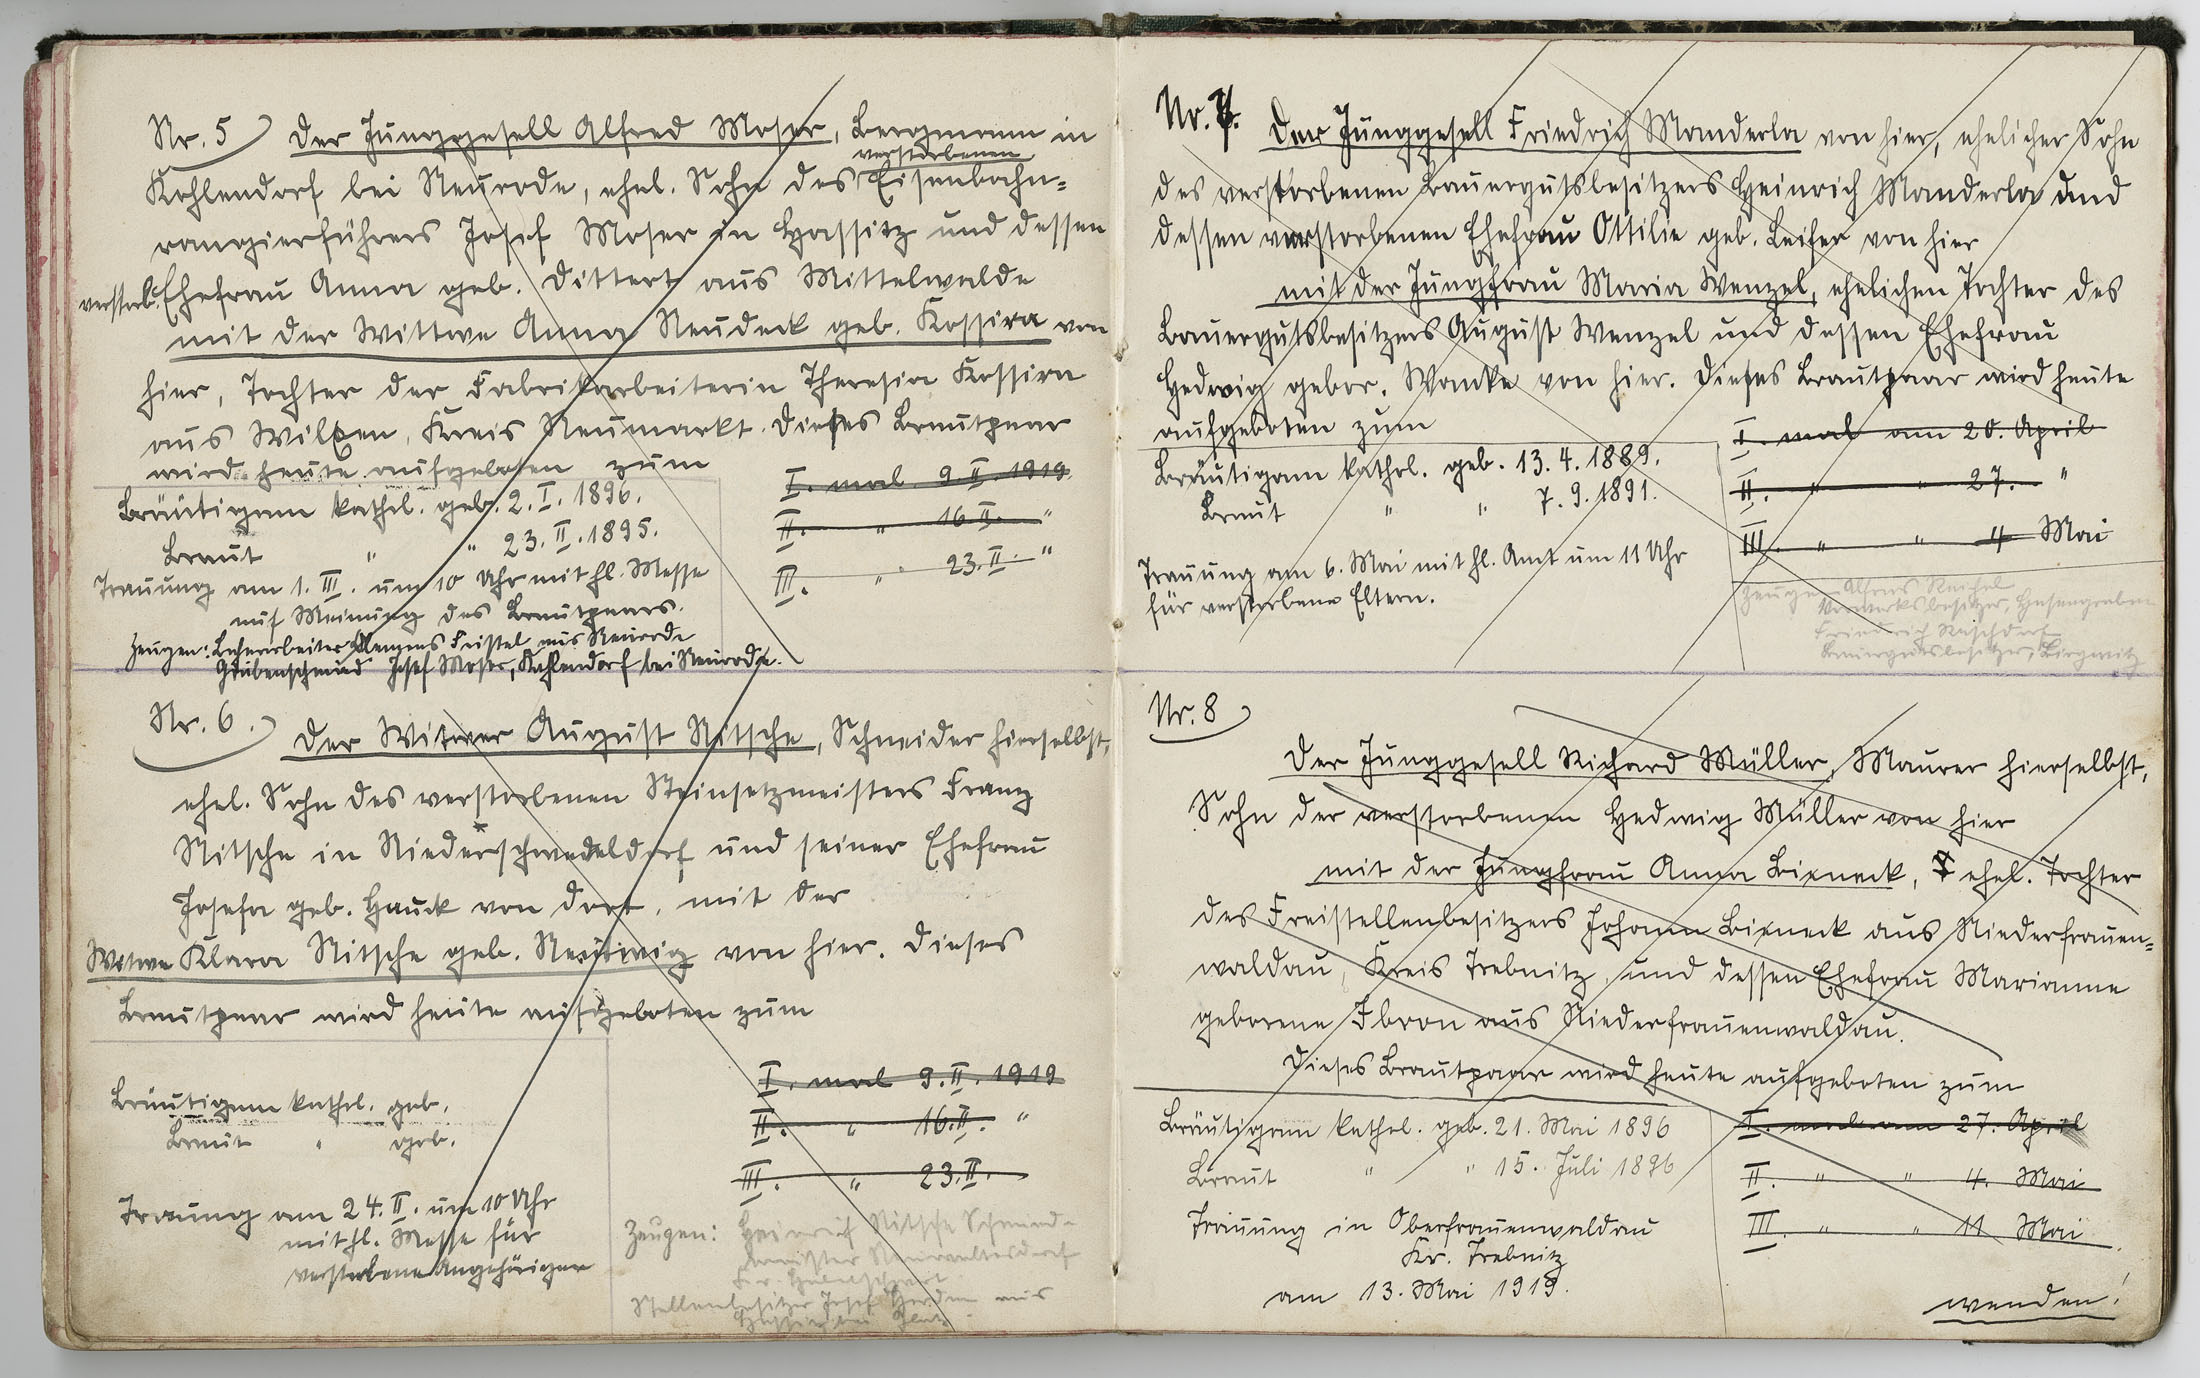 Nr. 5) Der Junggesell Alfred Moser, Bergmann in
verstorbenen
Kohlendorf bei Neurode, ehel. Sohn des Eisenbahn=
rangierführers Josef Moser in Hassitz und dessen
verstorb. Ehefrau Anna geb. Dittert aus Mittelwalde
mit der Wittwe Anna Neudeck geb. Kossira von
hier, Tochter der Fabrikarbeiterin Theresia Kossira
aus Wilxen, Kreis Neumarkt. Dieses Brautpaar
wird heute aufgeboten zum
I. mal 9. II. 1919
II. " 16. II. "
III. " 23. II. "
Bräutigam kathol. geb. 2. I. 1896.
Braut " " 23. II. 1895.
Trauung am 1. III. um 10 Uhr mit hl. Messe
auf Meinung des Brautpaars.
Zeugen: Klemens Feistel aus Neurode
Grubenschmied Josef Moser, Kohlendorf bei Neurode.
Nr. 6.)
Der Witwer August Nitsche, Schneider hierselbst,
ehel. Sohn des verstorbenen Steinsetzmeisters Franz
Nitsche in Niederschwedeldorf und seiner Ehefrau
Josefa geb. Hauck von dort, mit der
Witwe Klara Nitsche geb. Neutwig von hier. Dieses
Brautpaar wird heute aufgeboten zum
I. mal 9. II. 1919
II. " 16. II. "
III. " 23. II.
Bräutigam kathol. geb.
Braut " geb.
Trauung am 24. II. um 10 Uhr
mit hl. Messe für
verstorbene Angehörigen
Zeugen: Heinrich Nitsche Schmiede-
meister
Stellenbesitzer Josef aus
Nr. 7.
Der Junggesell Friedrich Manderla von hier, ehelicher Sohn
des verstorbenen Bauergutsbesitzers Heinrich Manderla und
dessen verstorbenen Ehefrau Ottilie geb. Leifer von hier
mit der Jungfrau Maria Wenzel, ehelichen Tochter des
Bauergutsbesitzers August Wenzel und dessen Ehefrau
Hedwig gebor. Wanke von hier. Dieses Brautpaar wird heute
aufgeboten zum
I. mal am 20. April
II. " " 27. "
III. " " 4 Mai
Bräutigam kathol. geb. 13. 4. 1889.
Braut " " 7. 9. 1891.
Trauung am 6. Mai mit hl. Amt um 11 Uhr
für verstorbene Eltern.
Zeugen: Alfons Reichel
Vorwerksbesitzer,
Friedrich
Bauergutsbesitzer,
Nr. 8)
Der Junggesell Richard Müller, Maurer hierselbst,
Sohn der verstorbenen Hedwig Müller von hier
mit der Jungfrau Anna Bieneck, ehel. Tochter
des Freistellenbesitzers Johann Bieneck aus Niederfrauen=
waldau, Kreis Trebnitz, und dessen Ehefrau Marianne
geborene Ibron aus Niederfrauenwaldau.
Dieses Brautpaar wird heute aufgeboten zum
I. mal am 27. April
II. " " 4. Mai
III. " " 11 Mai
Bräutigam kathol. geb. 21. Mai 1896
Braut " " 15. Juli 1896
Trauung in Oberfrauenwaldau
Kr. Trebnitz
am 13. Mai 1919.
wenden!